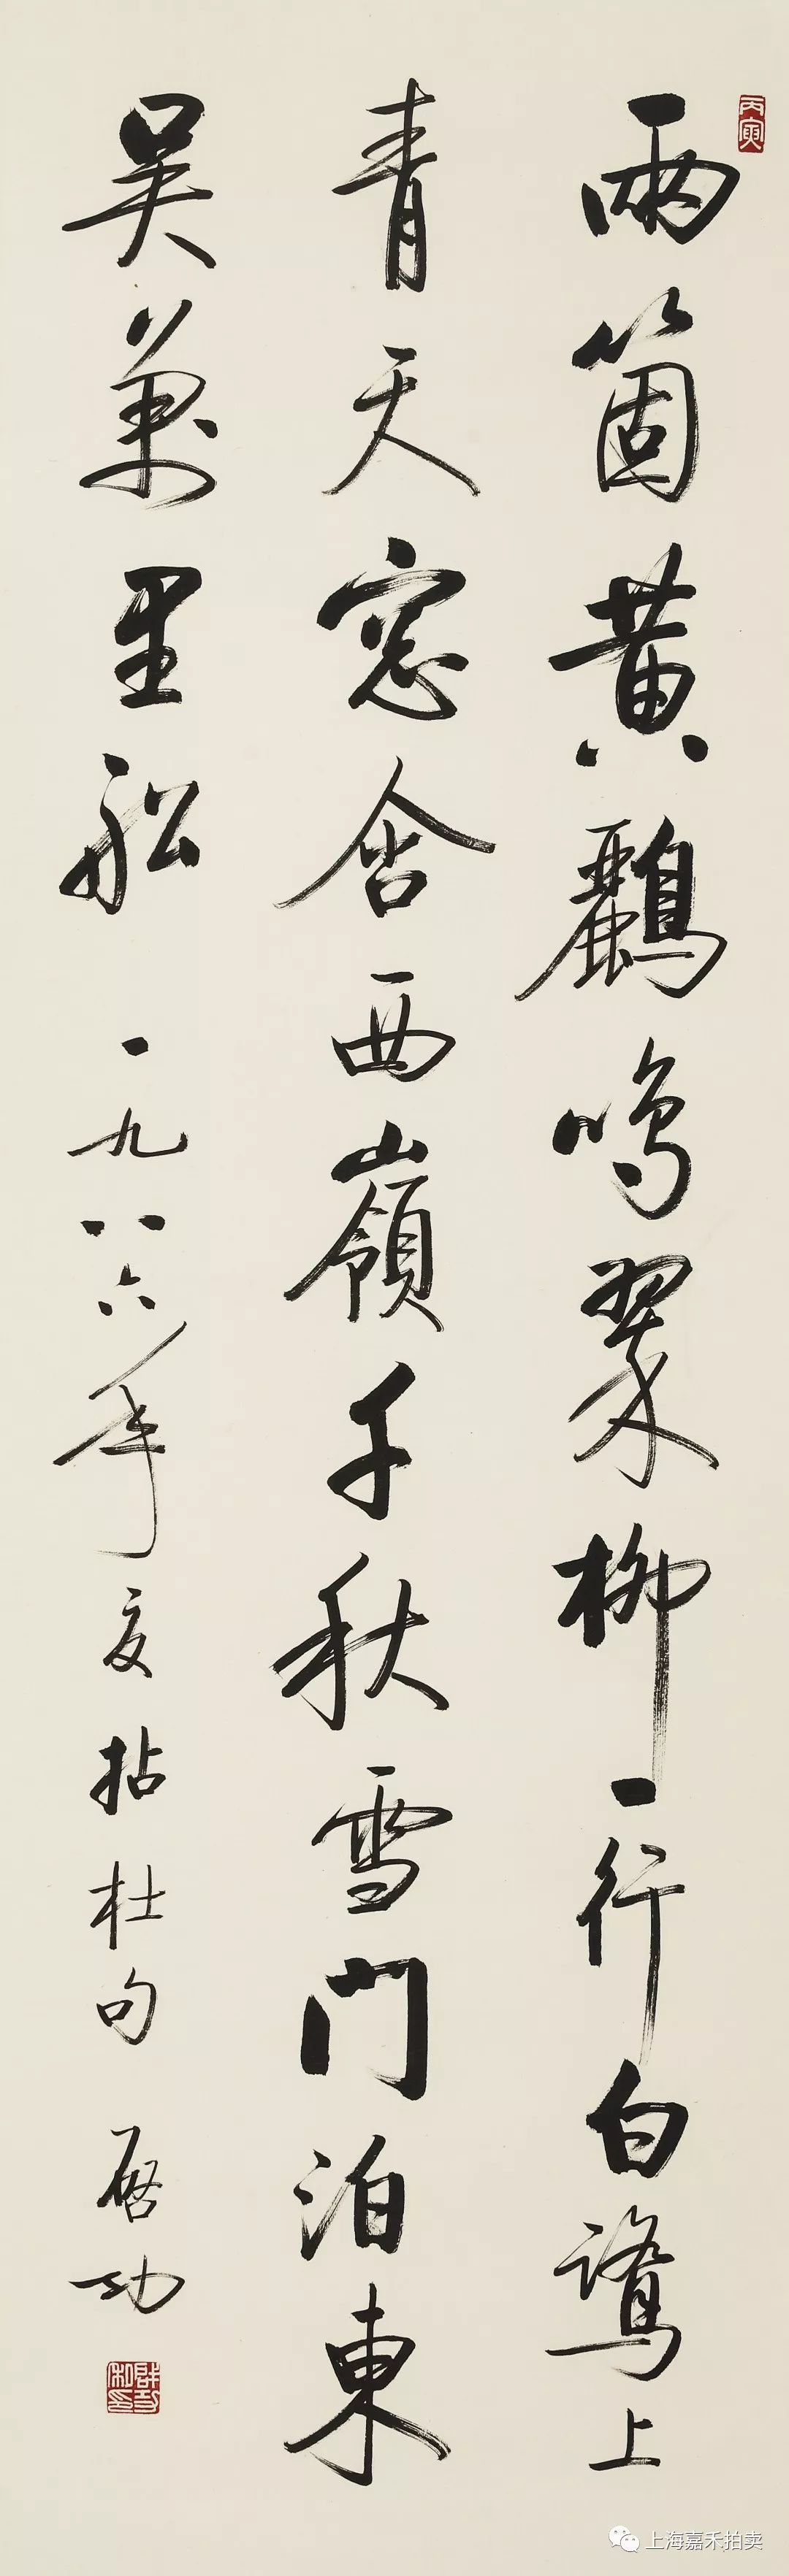 丙寅
兩箇黃鸝鳴翠柳一行白鷺上
青天窓含西嶺千秋雪門泊東
吳萬里船 一九八六年夏拈杜句 啓功
上海嘉禾拍卖